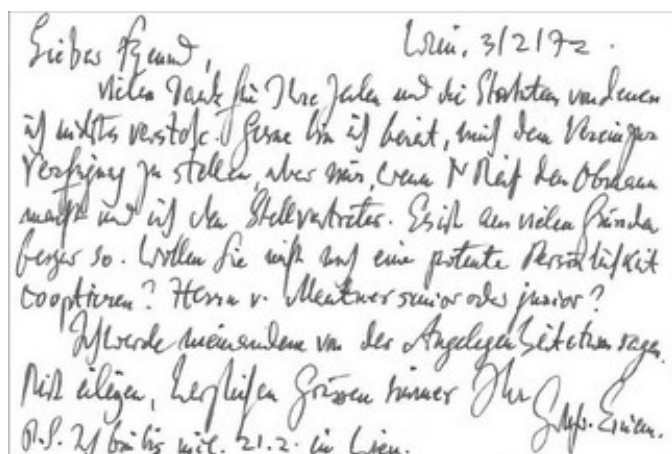 Lieber Freund, Wien, 3/2/72.
vielen Dank für Ihre Zeilen und die Statuten von denen
ich nichts verstehe. Gerne bin ich bereit, mich dem Verein zur
Verfügung zu stellen, aber nur, wenn Reif den Obmann
macht und ich den Stellvertreter. Es ist aus vielen Gründen
besser so. Wollen Sie nicht noch eine potente Persönlichkeit
cooptieren? Herrn v. senior oder junior?
Ich werde niemandem von der Angelegenheit etwas sagen.
Mit eiligen, herzlichen Grüssen immer Ihr
P.S. Ich bin bis incl. 21.2. in Wien.